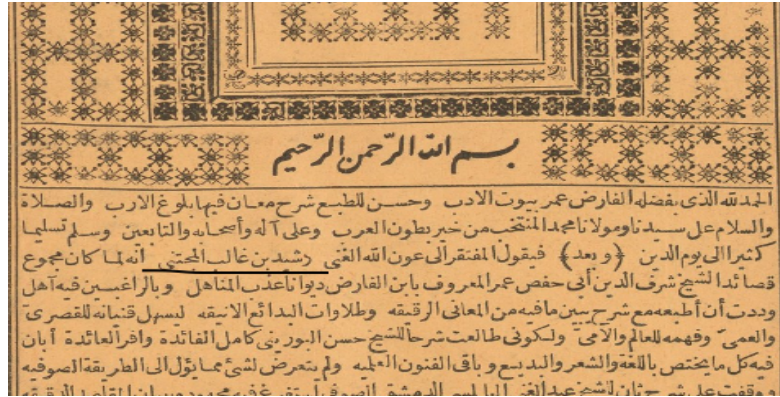 بسم الله الرّحمن الرّحيم
الحمد لله الذى بفضله الفارض عمر بيوت الادب وحسن للطبع شرح معان فيها بلوغ الارب والصلاة
والسلام على سيدنا ومولانا محمد المنتخب من خير بطون العرب وعلى آله وأصحابه والتابعين وسلم تسليما
كثيرا الى يوم الدين ﴿وبعد﴾ فيقول المفتقر الى عون الله الغنى رشيد بن غالب المجتبى انه لما كان مجموع
قصائد الشيخ شرف الدين أبى حفص عمر المعروف بابن الفارض ديوانا عذب المناهل وبالراغبين فيه آهل
وددت أن أطبعه مع شرح يبين ما فيه من المعانى الرقيقه وطلاوات البدائع الانيقه ليسهل قنيانه للقصرى
والعمىّ وفهمه للعالم والامىّ ولكونى طالعت شرحا للشيخ حسن البورينى كامل الفائدة وافر العائدة أبان
فيه كل ما يختص باللغة والشعر والبديع وباقى الفنون العلميه ولم يتعرض لشئ مما يؤل الى الطريقة الصوفيه
ووقفت على شرح ثان للشيخ عبد الغنى النابلسى الدمشقى الصوفى